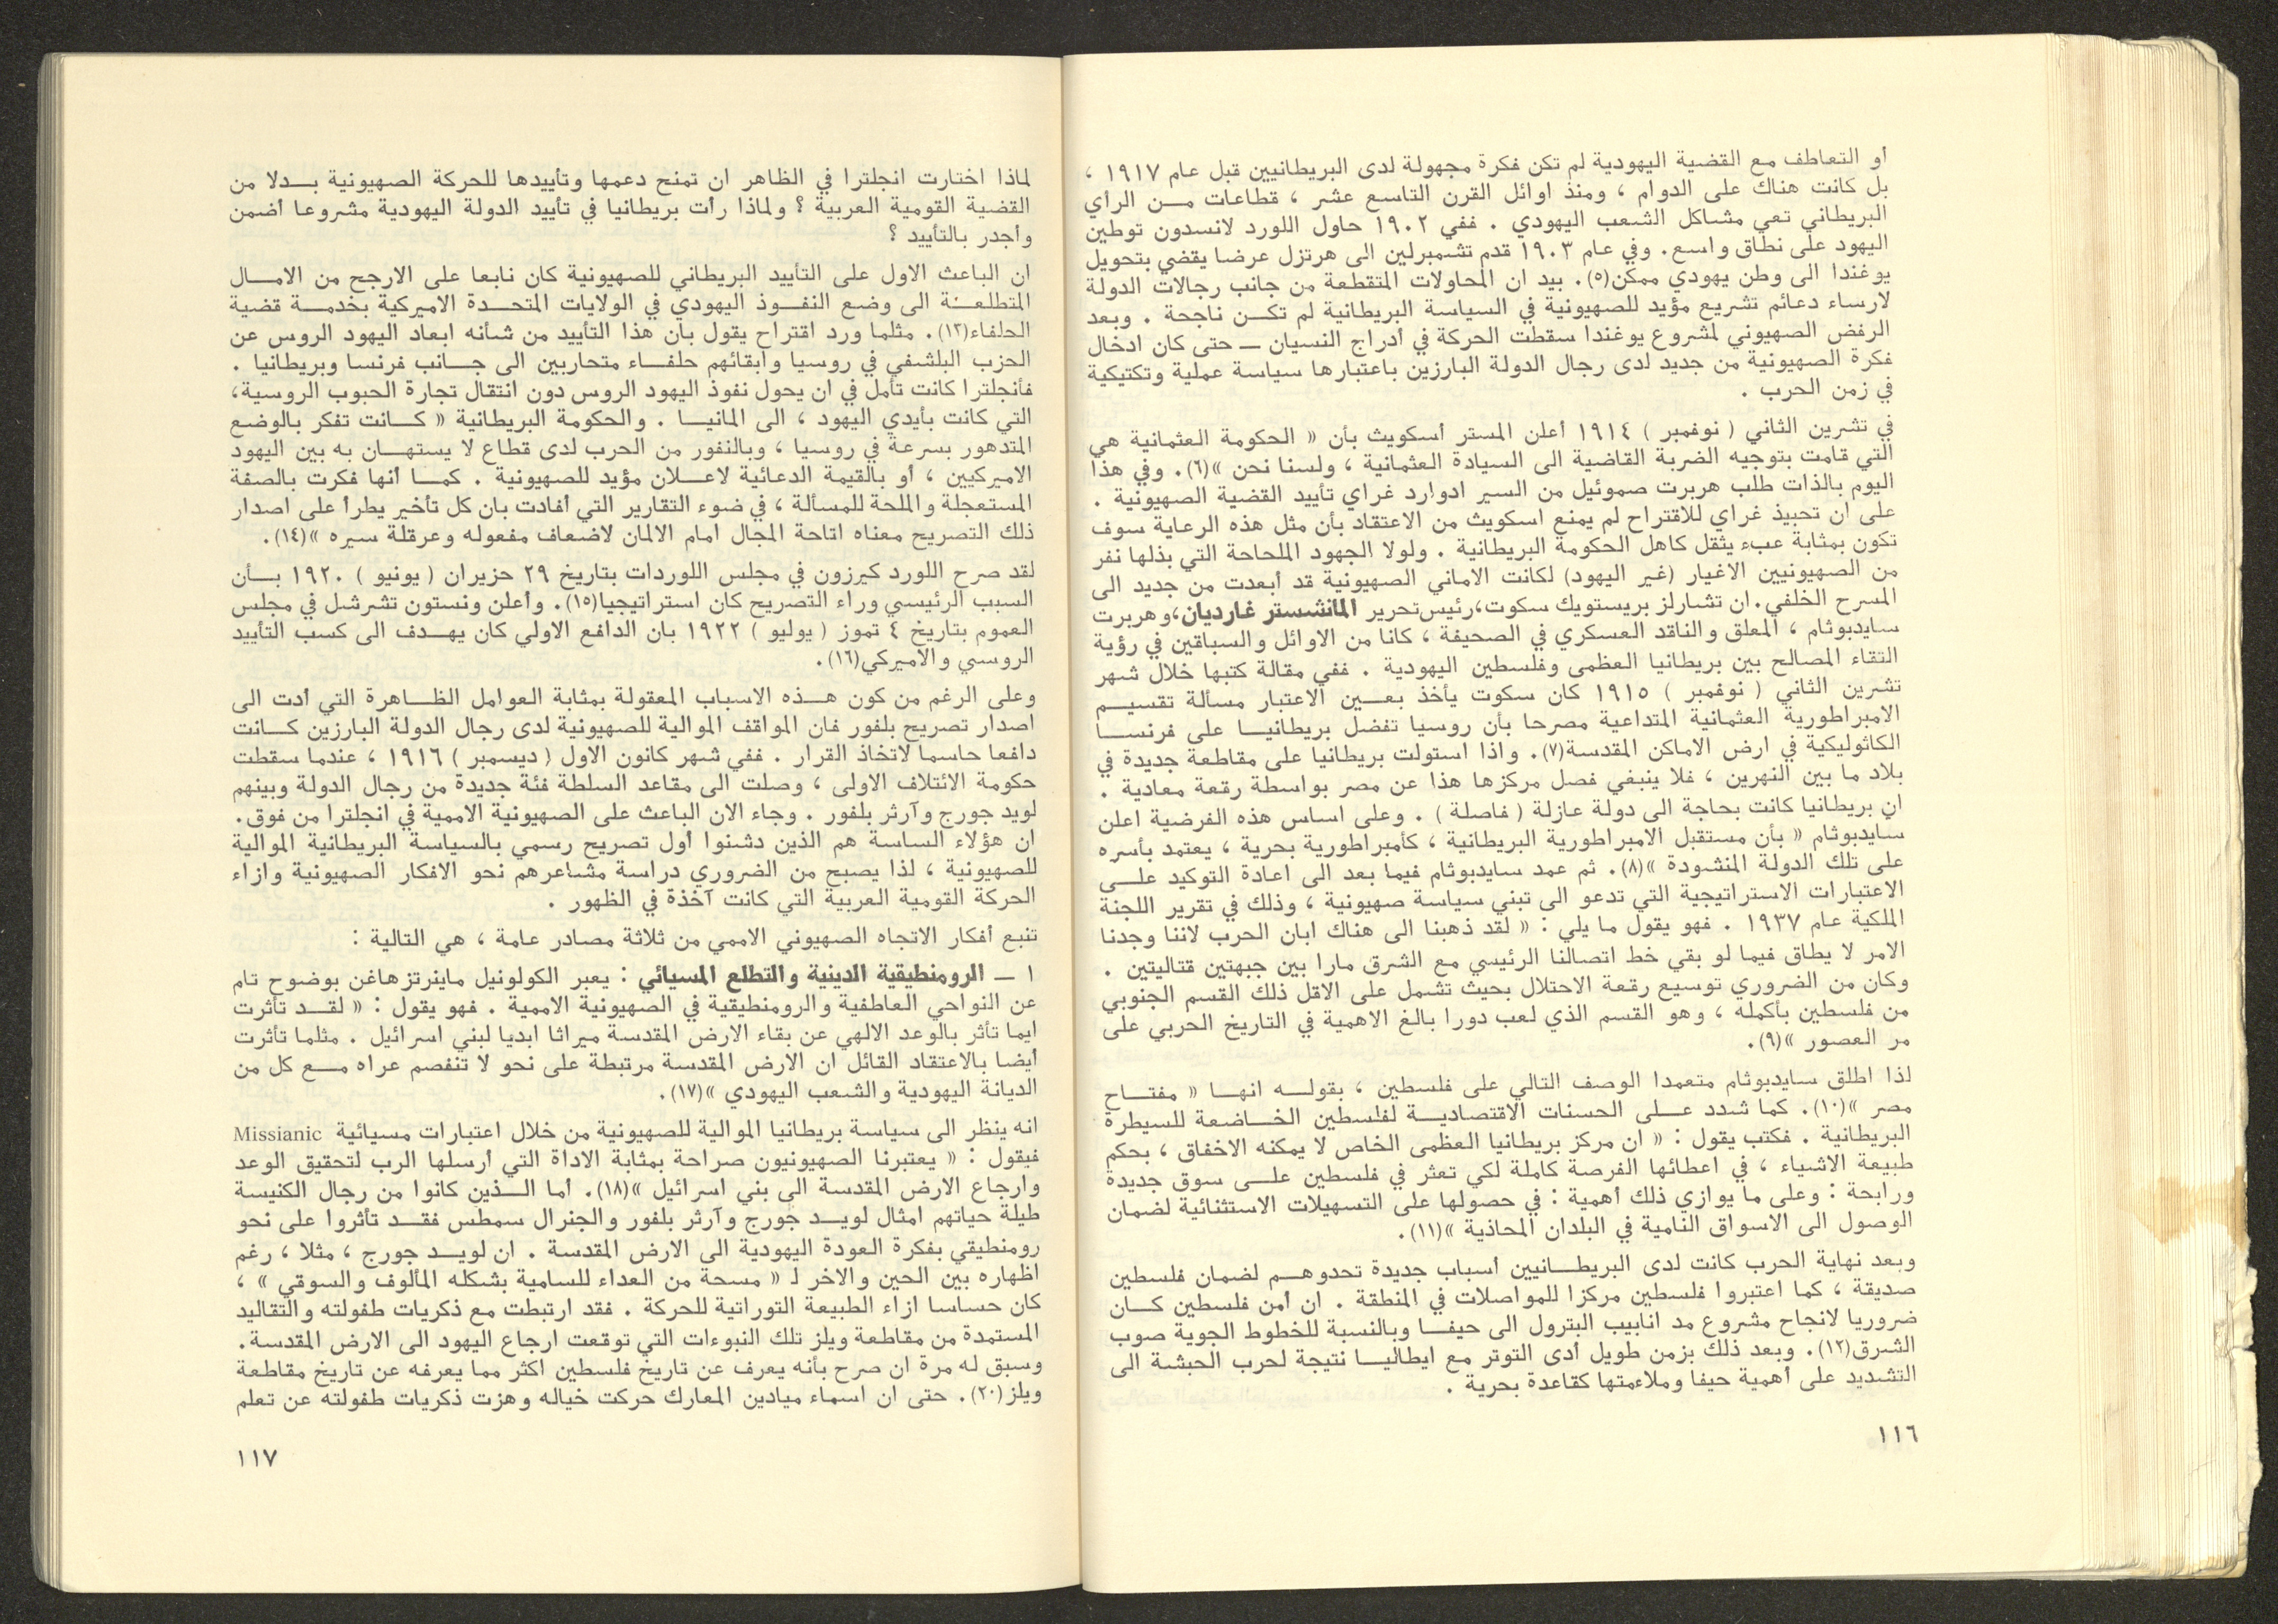 أو التعاطف مع القضية اليهودية لم تكن فكرة مجهولة لدى البريطانيين قبل عام ١٩١٧ ،
بل كانت هناك على الدوام ، ومنذ اوائل القرن التاسع عشر ، قطاعات مـن الرأي
البريطاني تعي مشاكل الشعب اليهودي . ففي ١٩٠٢ حاول اللورد لانسدون توطين
اليهود على نطاق واسع. وفي عام ١٩٠٣ قدم تشمبرلين الى هرتزل عرضا يقضي بتحويل
يوغندا الى وطن يهودي ممكن(٥). بيد ان المحاولات المتقطعة من جانب رجالات الدولة
لارساء دعائم تشريع مؤيد للصهيونية في السياسة البريطانية لم تكـن ناجحة . وبعد
الرفض الصهيوني لمشروع يوغندا سقطت الحركة في أدراج النسيان ـ حتى كان ادخال
فكرة الصهيونية من جديد لدى رجال الدولة البارزين باعتبارها سياسة عملية وتكتيكية
في زمن الحرب .
في تشرين الثاني ( نوفمبر ) ١٩١٤ أعلن المستر أسكويث بأن « الحكومة العثمانية هي
التي قامت بتوجيه الضربة القاضية الى السيادة العثمانية ، ولسنا نحن »(٦). وفي هذا
اليوم بالذات طلب هربرت صموئيل من السير ادوارد غراي تأييد القضية الصهيونية .
على ان تحبيذ غراي للاقتراح لم يمنع اسكويث من الاعتقاد بأن مثل هذه الرعاية سوف
تكون بمثابة عبء يثقل كاهل الحكومة البريطانية . ولولا الجهود الملحاحة التي بذلها نفر
من الصهيونيين الاغيار (غير اليهود) لكانت الاماني الصهيونية قد أبعدت من جديد الى
المسرح الخلفي. ان تشارلز بريستويك سكوت،رئيس تحرير المانشستر غارديان،وهربرت
سايدبوثام ، المعلق والناقد العسكري في الصحيفة ، كانا من الاوائل والسباقين في رؤية
التقاء المصالح بين بريطانيا العظمى وفلسطين اليهودية . ففي مقالة كتبها خلال شهر
تشرين الثاني ( نوفمبر ) ١٩١٥ كان سكوت يأخذ بعـين الاعتبار مسألة تقسيـم
الامبراطورية العثمانية المتداعية مصرحا بأن روسيا تفضل بريطانيـا على فرنسـا
الكاثوليكية في ارض الاماكن المقدسة(٧). واذا استولت بريطانيا على مقاطعة جديدة في
بلاد ما بين النهرين ، فلا ينبغي فصل مركزها هذا عن مصر بواسطة رقعة معادية .
ان بريطانيا كانت بحاجة الى دولة عازلة ( فاصلة ) . وعلى اساس هذه الفرضية اعلن
سايدبوثام « بأن مستقبل الامبراطورية البريطانية ، كأمبراطورية بحرية ، يعتمد بأسره
على تلك الدولة المنشودة »(٨). ثم عمد سايدبوثام فيما بعد الى اعادة التوكيد علـى
الاعتبارات الاستراتيجية التي تدعو الى تبني سياسة صهيونية ، وذلك في تقرير اللجنة
الملكية عام ١٩٣٧ . فهو يقول ما يلي : « لقد ذهبنا الى هناك ابان الحرب لاننا وجدنا
الامر لا يطاق فيما لو بقي خط اتصالنا الرئيسي مع الشرق مارا بين جبهتين قتاليتين .
وكان من الضروري توسيع رقعة الاحتلال بحيث تشمل على الاقل ذلك القسم الجنوبي
من فلسطين بأكمله ، وهو القسم الذي لعب دورا بالغ الاهمية في التاريخ الحربي على
مر العصور »(٩).
لذا اطلق سايدبوثام متعمدا الوصف التالي على فلسطين ، بقولـه انهـا « مفتـاح
مصر »(١٠). كما شدد عـلى الحسنات الاقتصاديـة لفلسطين الخـاضعة للسيطرة
البريطانية . فكتب يقول : « ان مركز بريطانيا العظمى الخاص لا يمكنه الاخفاق ، بحكم
طبيعة الاشياء ، في اعطائها الفرصة كاملة لكي تعثر في فلسطين علـى سوق جديدة
ورابحة : وعلى ما يوازي ذلك أهمية : في حصولها على التسهيلات الاستثنائية لضمان
الوصول الى الاسواق النامية في البلدان المحاذية »(١١).
وبعد نهاية الحرب كانت لدى البريطـانيين أسباب جديدة تحدوهـم لضمان فلسطين
صديقة ، كما اعتبروا فلسطين مركزا للمواصلات في المنطقة . ان أمن فلسطين كـان
ضروريا لانجاح مشروع مد انابيب البترول الى حيفـا وبالنسبة للخطوط الجوية صوب
الشرق(١٢). وبعد ذلك بزمن طويل أدى التوتر مع ايطاليـا نتيجة لحرب الحبشة الى
التشديد على أهمية حيفا وملاءمتها كقاعدة بحرية .
١١٦
لماذا اختارت انجلترا في الظاهر ان تمنح دعمها وتأييدها للحركة الصهيونية بـدلا من
القضية القومية العربية ؟ ولماذا رأت بريطانيا في تأييد الدولة اليهودية مشروعا أضمن
وأجدر بالتأييد ؟
ان الباعث الاول على التأييد البريطاني للصهيونية كان نابعا على الارجح من الامـال
المتطلعـة الى وضع النفـوذ اليهودي في الولايات المتحـدة الاميركية بخدمـة قضية
الحلفاء(١٣). مثلما ورد اقتراح يقول بأن هذا التأييد من شأنه ابعاد اليهود الروس عن
الحزب البلشفي في روسيا وابقائهم حلفـاء متحاربين الى جـانب فرنسا وبريطانيا .
فأنجلترا كانت تأمل في ان يحول نفوذ اليهود الروس دون انتقال تجارة الحبوب الروسية،
التي كانت بأيدي اليهود ، الى المانيـا . والحكومة البريطانية « كـانت تفكر بالوضع
المتدهور بسرعة في روسيا ، وبالنفور من الحرب لدى قطاع لا يستهـان به بين اليهود
الاميركيين ، أو بالقيمة الدعائية لاعـلان مؤيد للصهيونية . كمـا أنها فكرت بالصفة
المستعجلة والملحة للمسألة ، في ضوء التقارير التي أفادت بان كل تأخير يطرأ على اصدار
ذلك التصريح معناه اتاحة المجال امام الالمان لاضعاف مفعوله وعرقلة سيره »(١٤).
لقد صرح اللورد كيرزون في مجلس اللوردات بتاريخ ٢٩ حزيران ( يونيو ) ١٩٢٠ بـأن
السبب الرئيسي وراء التصريح كان استراتيجيا(١٥). وأعلن ونستون تشرشل في مجلس
العموم بتاريخ ٤ تموز ( يوليو ) ١٩٢٢ بان الدافع الاولي كان يهـدف الى كسب التأييد
الروسي والاميركي(١٦).
وعلى الرغم من كون هـذه الاسباب المعقولة بمثابة العوامل الظـاهرة التي أدت الى
اصدار تصريح بلفور فان المواقف الموالية للصهيونية لدى رجال الدولة البارزين كـانت
دافعا حاسما لاتخاذ القرار . ففي شهر كانون الاول ( ديسمبر ) ١٩١٦ ، عندما سقطت
حكومة الائتلاف الاولى ، وصلت الى مقاعد السلطة فئة جديدة من رجال الدولة وبينهم
لويد جورج وآرثر بلفور . وجاء الان الباعث على الصهيونية الاممية في انجلترا من فوق.
ان هؤلاء الساسة هم الذين دشنوا أول تصريح رسمي بالسياسة البريطانية الموالية
للصهيونية ، لذا يصبح من الضروري دراسة مشاعرهم نحو الافكار الصهيونية وازاء
الحركة القومية العربية التي كانت آخذة في الظهور .
تنبع أفكار الاتجاه الصهيوني الاممي من ثلاثة مصادر عامة ، هي التالية :
١ ـ الرومنطيقية الدينية والتطلع المسيائي : يعبر الكولونيل ماينرتزهاغن بوضوح تام
عن النواحي العاطفية والرومنطيقية في الصهيونية الاممية . فهو يقول : « لقـد تأثرت
ايما تأثر بالوعد الالهي عن بقاء الارض المقدسة ميراثا ابديا لبني اسرائيل . مثلما تأثرت
أيضا بالاعتقاد القائل ان الارض المقدسة مرتبطة على نحو لا تنفصم عراه مـع كل من
الديانة اليهودية والشعب اليهودي »(١٧).
انه ينظر الى سياسة بريطانيا الموالية للصهيونية من خلال اعتبارات مسيائية Missianic
فيقول : « يعتبرنا الصهيونيون صراحة بمثابة الاداة التي أرسلها الرب لتحقيق الوعد
وارجاع الارض المقدسة الى بني اسرائيل »(١٨). أما الـذين كانوا من رجال الكنيسة
طيلة حياتهم امثال لويـد جورج وآرثر بلفور والجنرال سمطس فقـد تأثروا على نحو
رومنطيقي بفكرة العودة اليهودية الى الارض المقدسة . ان لويـد جورج ، مثلا ، رغم
اظهاره بين الحين والاخر لـ « مسحة من العداء للسامية بشكله المألوف والسوقي » ،
كان حساسا ازاء الطبيعة التوراتية للحركة . فقد ارتبطت مع ذكريات طفولته والتقاليد
المستمدة من مقاطعة ويلز تلك النبوءات التي توقعت ارجاع اليهود الى الارض المقدسة.
وسبق له مرة ان صرح بأنه يعرف عن تاريخ فلسطين اكثر مما يعرفه عن تاريخ مقاطعة
ويلز(٢٠). حتى ان اسماء ميادين المعارك حركت خياله وهزت ذكريات طفولته عن تعلم
١١٧